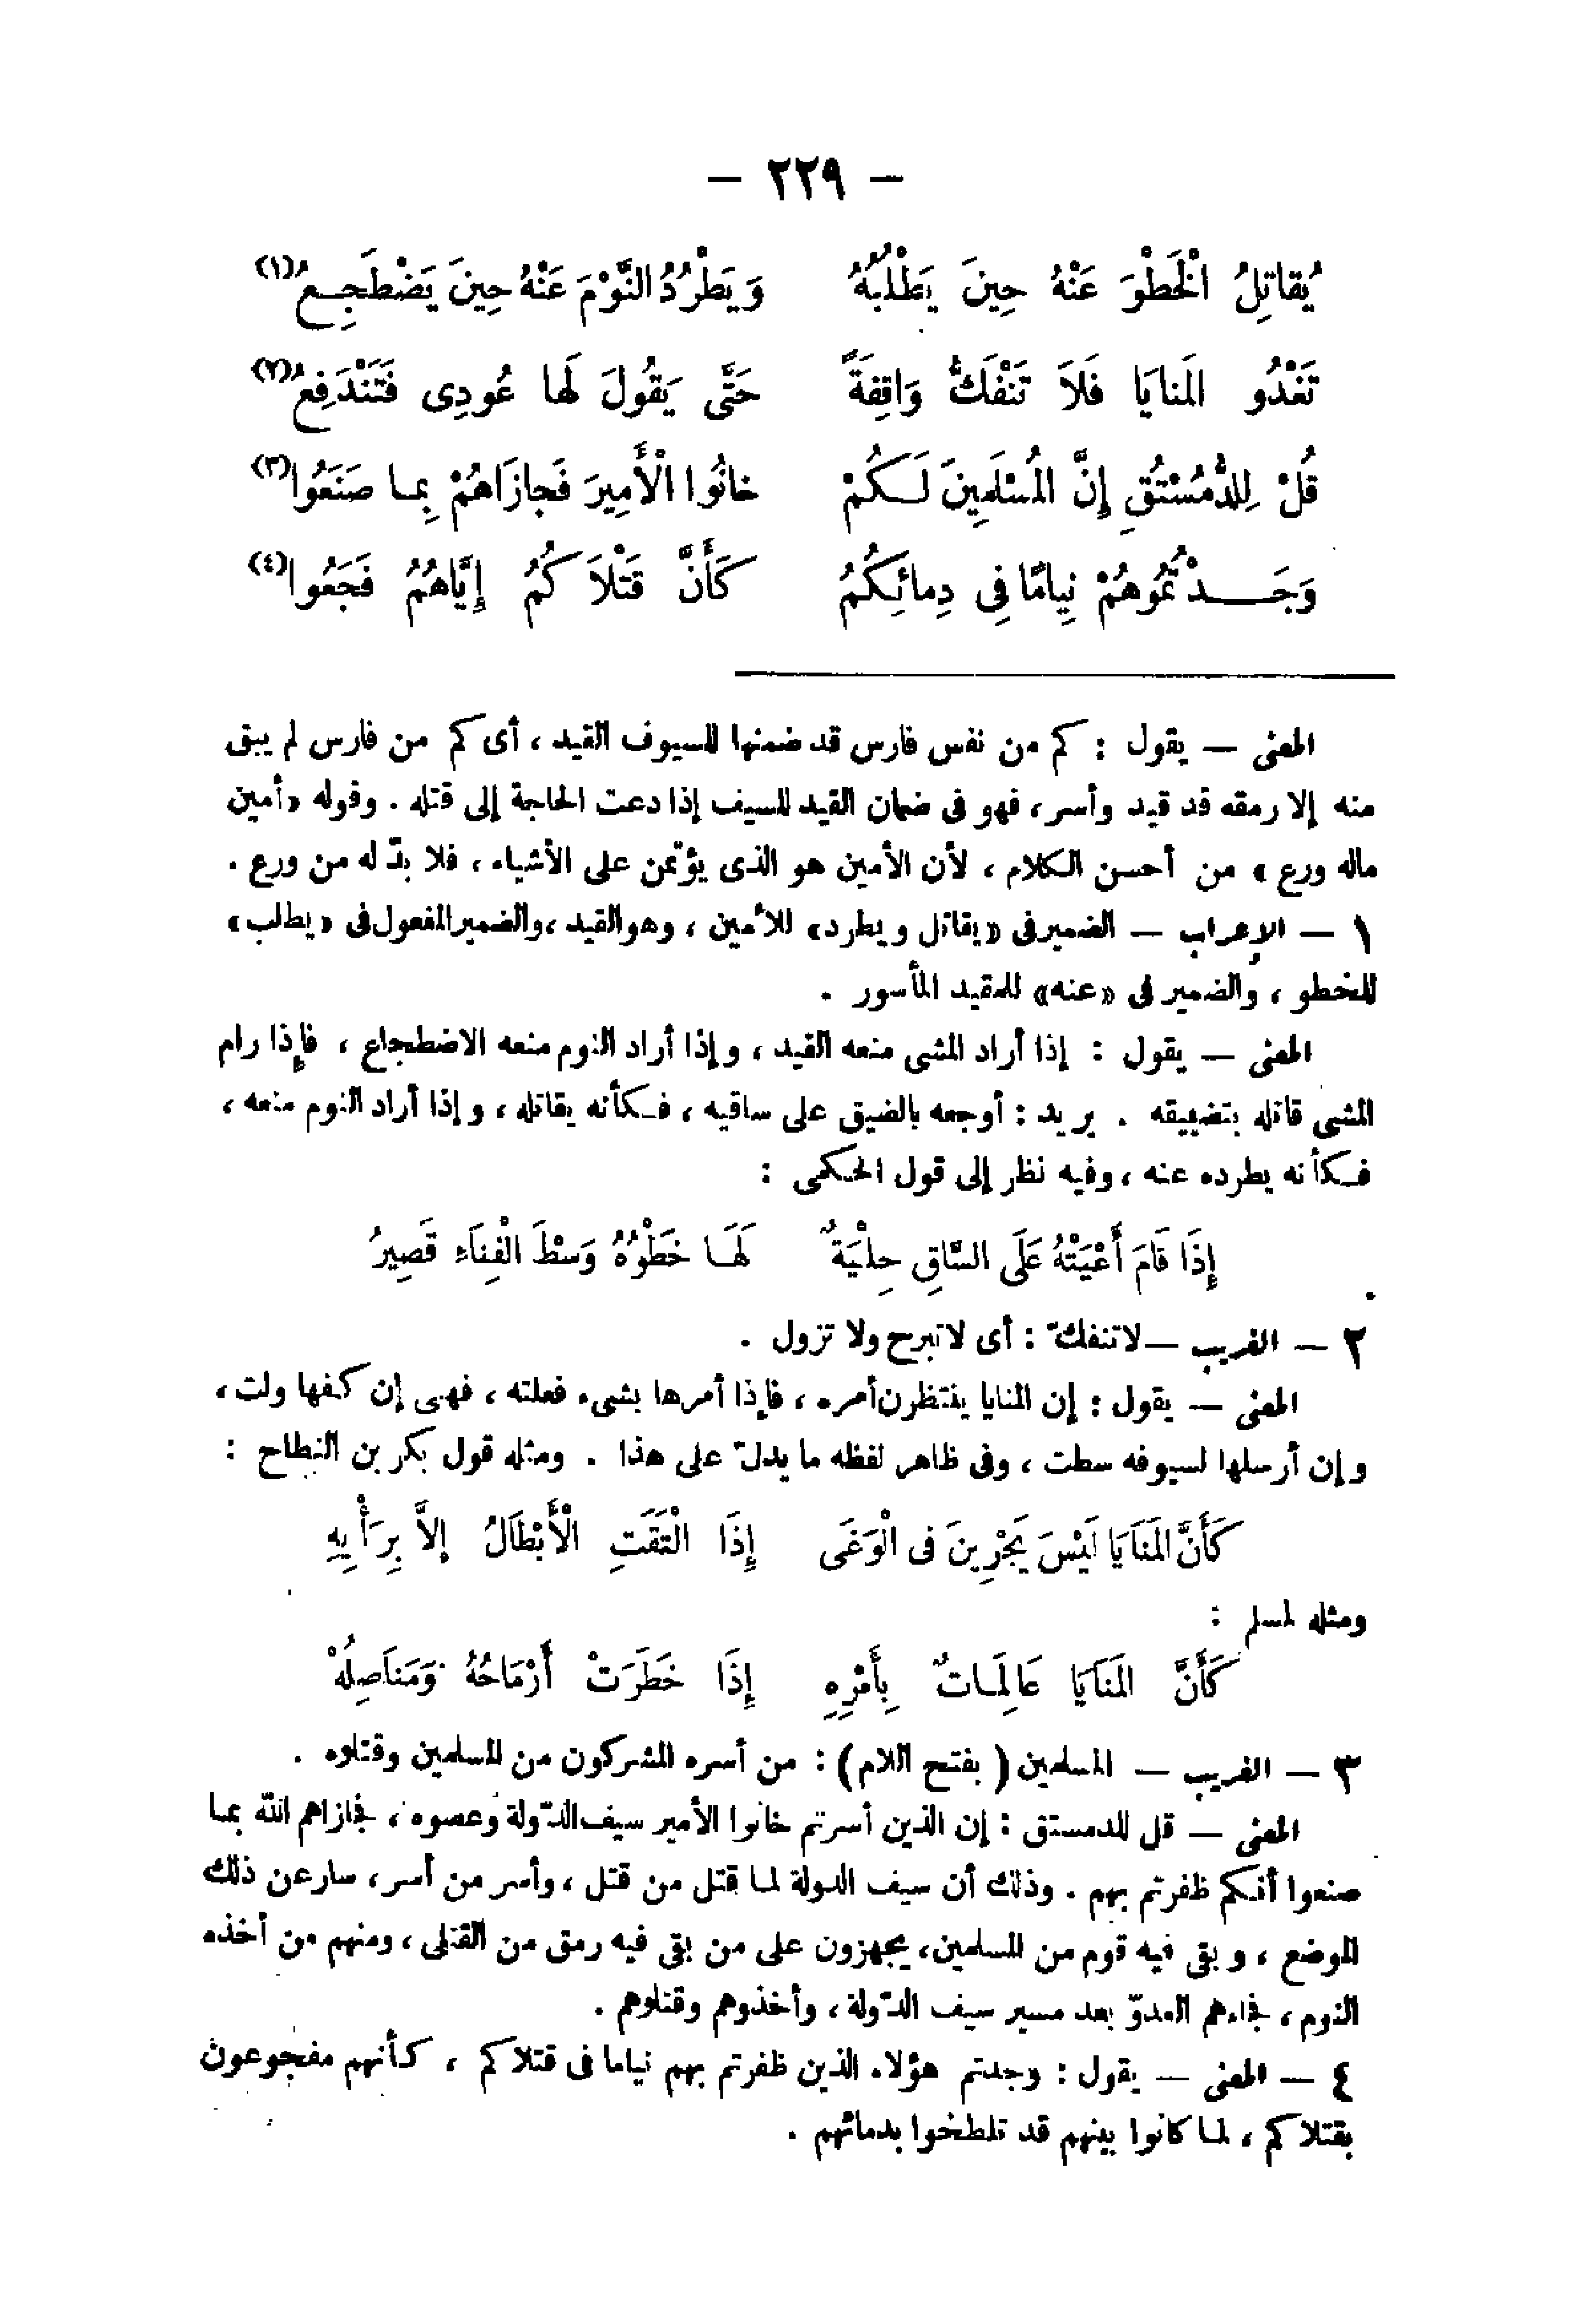 — ٢٢٩ —
يُقاتِلُ الْخَطْوَ عَنْهُ حِينَ يَطْلُبُهُ وَيَطْرُدُ النَّوْمَ عَنْهُ حِينَ يَضْطَجِـعُ (١)
تَغْدُو المَنايَا فَلاَ تَنْفَكُّ وَاقِفَةً حَتَّى يَقُولَ لَها عُودِى فَتَنْدَفِعُ (٢)
قُلْ لِلدُّمُسْتُقِ إِنَّ المُسْلَمِينَ لَـكُمْ خانُوا الْأَمِيرَ فَجازَاهُمْ بِمـا صَنَعُوا (٣)
وَجَــدْتُمُوهُمْ نِيامًا فِى دِمائِكُمُ كَأَنَّ قَتْلاَكُمُ إِيَّاهُمُ فَجَعُوا (٤)
المعنى — يقول : كم من نفس فارس قد ضمنها للسيوف القيد ، أى كم من فارس لم يبق
منه إلا رمقه قد قيد وأسر ، فهو فى ضمان القيد للسيف إذا دعت الحاجة إلى قتله . وقوله «أمين
ماله ورع » من أحسن الـكلام ، لأن الأمين هو الذى يؤتمن على الأشياء ، فلا بدّ له من ورع .
١ — الإعراب — الضمير فى «يقاتل ويطرد» للأمين ، وهو القيد ، والضمير المفعول فى «يطلب»
للخطو ، والضمير فى «عنه» للمقيد المأسور .
المعنى — يقول : إذا أراد المشى منعه القيد ، وإذا أراد النوم منعه الاضطجاع ، فإذا رام
المشى قاتله بتضييقه . يريد : أوجعه بالضيق على ساقيه ، فـكأنه يقاتله ، وإذا أراد النوم منعه ،
فـكأنه يطرده عنه ، وفيه نظر إلى قول الحـكمى :
إِذَا قَامَ أَعْيَتْهُ عَلَى السَّاقِ حِلْيَةٌ لَهَـا خَطْوُهُ وَسْطَ الْفِنَاَءِ قَصِيرُ
٢ — الغريب — لا تنفكّ : أى لا تبرح ولا تزول .
المعنى — يقول : إن المنايا ينتظرن أمره ، فإذا أمرها بشىء فعلته ، فهى إن كفها ولت ،
وإن أرسلها لسيوفه سطت ، وفى ظاهر لفظه ما يدلّ على هذا . ومثله قول بكر بن النطاح :
كَأَنَّ المَنَايَا لَيْسَ يَجْرِينَ فى الْوَغَى إِذَا الْتَقَتِ الْأَبْطَالُ إِلاَّ بِرَأْيِهِ
ومثله لمسلم :
كَأَنَّ المَنَايَا عَالِمَـاتٌ بِأَمْرِهِ إِذَا خَطَرَتْ أَرْمَاحُهُ وَمَنَاصِلُهْ
٣ — الغريب — المسلمين ( بفتح اللام ) : من أسره المشركون من المسلمين وقتلوه .
المعنى — قل للدمستق : إن الذين أسرتم خانوا الأمير سيف الدّولة وعصوه ، فجازاهم الله بمـا
صنعوا أنـكم ظفرتم بهم . وذلك أن سيف الدولة لمـا قتل من قتل ، وأسر من أسر ، سار عن ذلك
الموضع ، وبقى فيه قوم من المسلمين ، يجهزون على من بقى فيه رمق من القتلى ، ومنهم من أخذه
النوم ، فجاءهم العدوّ بعد مسير سيف الدّولة ، وأخذوهم وقتلوهم .
٤ — المعنى — يقول : وجدتم هؤلاء الذين ظفرتم بهم نياما فى قتلاكم ، كأنهم مفجوعون
بقتلاكم ، لمـا كانوا بينهم قد تلطخوا بدمائهم .